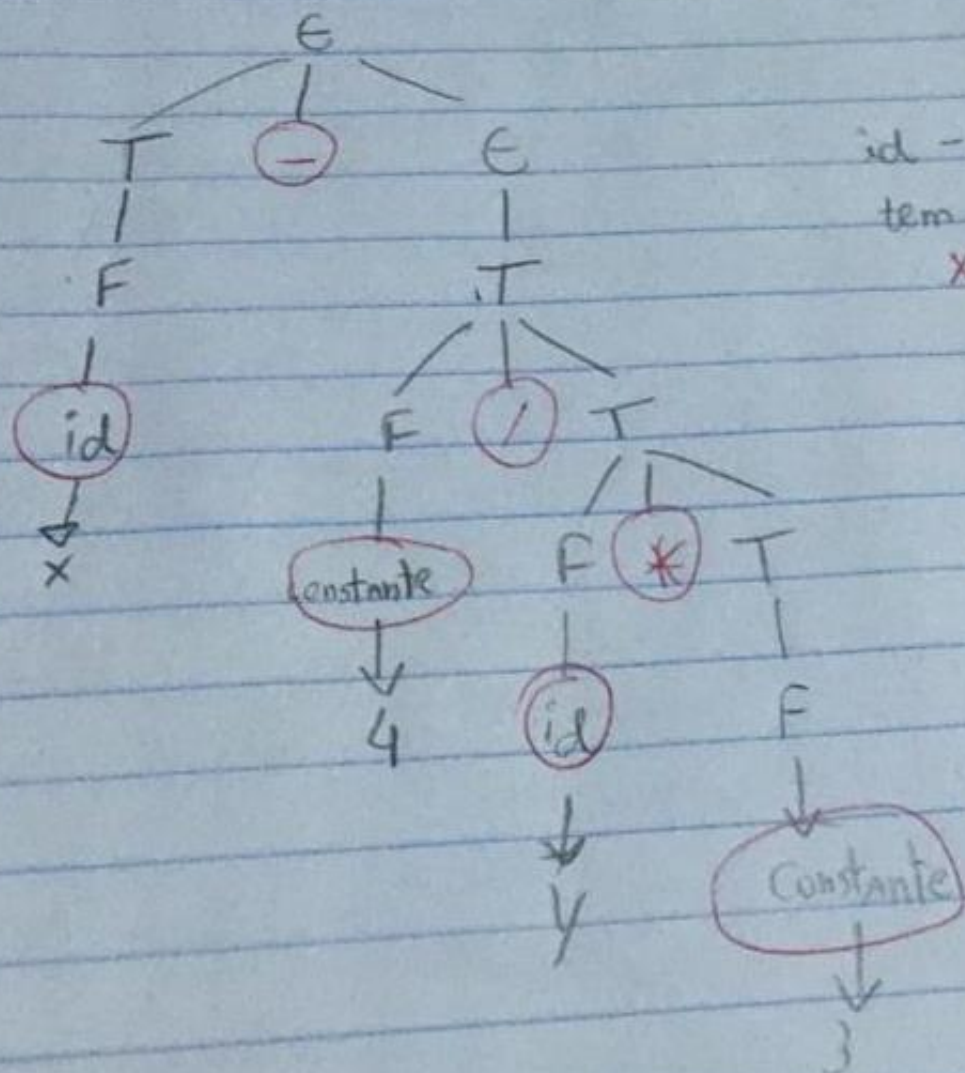 E
T - E id -
tem
F T x
id F / T
x constante F * T
4 id F
y Constante
3